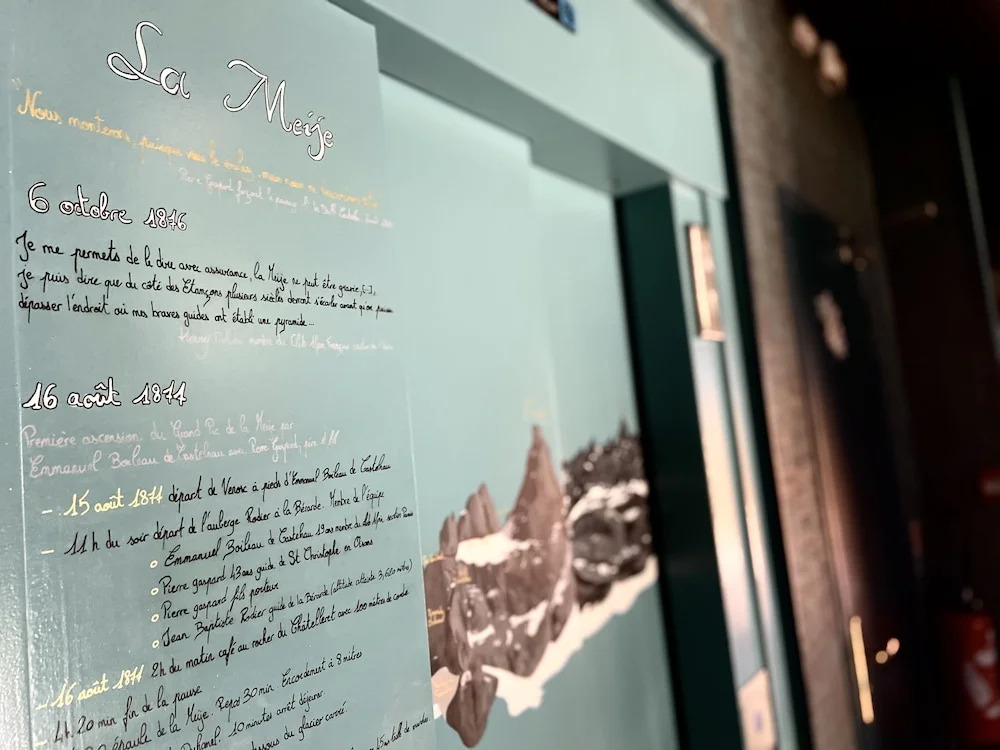 La Meije
"Nous monterons, puisque vous le voulez, mais nous ne
Pierre Gaspard forçant le passage
6 octobre 1876
Je me permets de le dire avec assurance, la Meije ne peut être gravie, [...],
je puis dire que du côté des Etançons plusieurs siècles devront s'écouler avant qu'on puisse
dépasser l'endroit où mes braves guides ont établi une pyramide...
Henry membre du Club Alpin Français
16 août 1877
Première ascension du Grand Pic de la Meije par
Emmanuel Boileau de Castelnau avec Pierre Gaspard, père et fils
- 15 août 1877 départ de Venosc à pieds d'Emmanuel Boileau de Castelnau
- 11 h du soir départ de l'auberge Rodier à la Bérarde. Membre de l'équipe
o Emmanuel Boileau de Castelnau 19 ans membre du club Alpin, section Paris
o Pierre gaspard 43 ans guide de St Christophe en Oisans
o Pierre gaspard fils porteur
o Jean Baptiste Rodier guide de la Bérarde (altitude atteinte 3,600 mètres)
- 16 août 1877 2h du matin café au rocher du Châtelleret avec 100 mètres de corde
- 4h 20 min fin de la pause
épaule de la Meije. Repos 30 min. Encordement à 8 mètres
Duhamel. 10 minutes arrêt déjeuner
dessous du glacier carré.